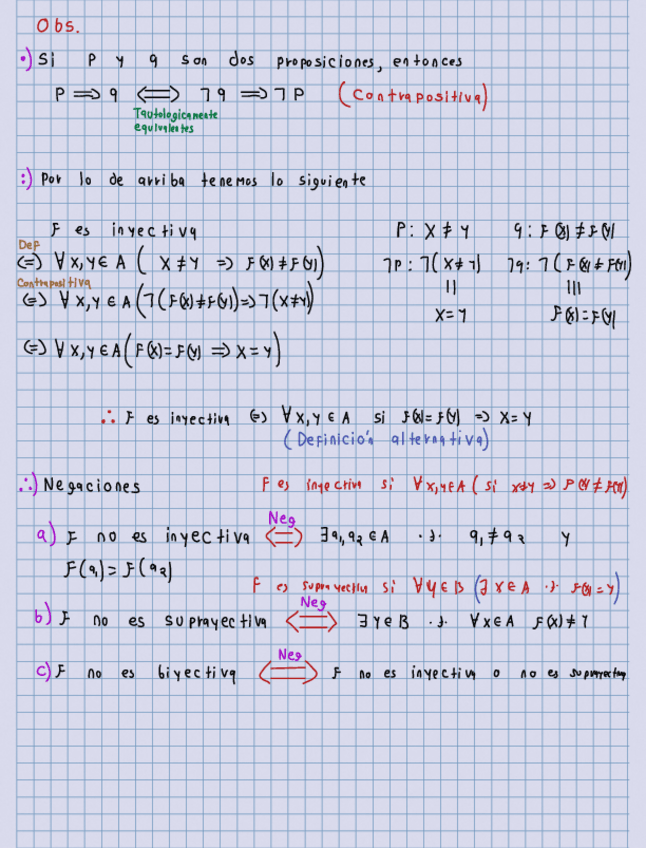 Obs.
•) Si P y q son dos proposiciones, entonces
P ⟹ q ⟺ ¬q ⟹ ¬P (Contrapositiva)
Tautologicamente
equivalentes
:) Por lo de arriba tenemos lo siguiente
F es inyectiva P: X ≠ Y q: F(X) ≠ F(Y)
Def
⟺ ∀ X,Y ∈ A ( X ≠ Y ⟹ F(X) ≠ F(Y)) ¬P: ¬(X ≠ Y) ¬q: ¬(F(X) ≠ F(Y))
Contrapositiva
⟺ ∀ X,Y ∈ A (¬(F(X) ≠ F(Y)) ⟹ ¬(X ≠ Y)) || |||
X = Y F(X) = F(Y)
⟺ ∀ X,Y ∈ A (F(X) = F(Y) ⟹ X = Y)
∴ F es inyectiva ⟺ ∀ X,Y ∈ A si F(X) = F(Y) ⟹ X = Y
(Definición alternativa)
∴) Negaciones F es inyectiva si ∀ X,Y ∈ A ( si X ≠ Y ⟹ F(X) ≠ F(Y))
Neg
a) F no es inyectiva ⟺ ∃ a₁,a₂ ∈ A ·∋· a₁ ≠ a₂ y
F(a₁) = F(a₂)
F es suprayectiva si ∀ Y ∈ B (∃ X ∈ A ·∋· F(X) = Y)
Neg
b) F no es suprayectiva ⟺ ∃ Y ∈ B ·∋· ∀ X ∈ A F(X) ≠ Y
Neg
c) F no es biyectiva ⟺ F no es inyectiva o no es suprayectiva